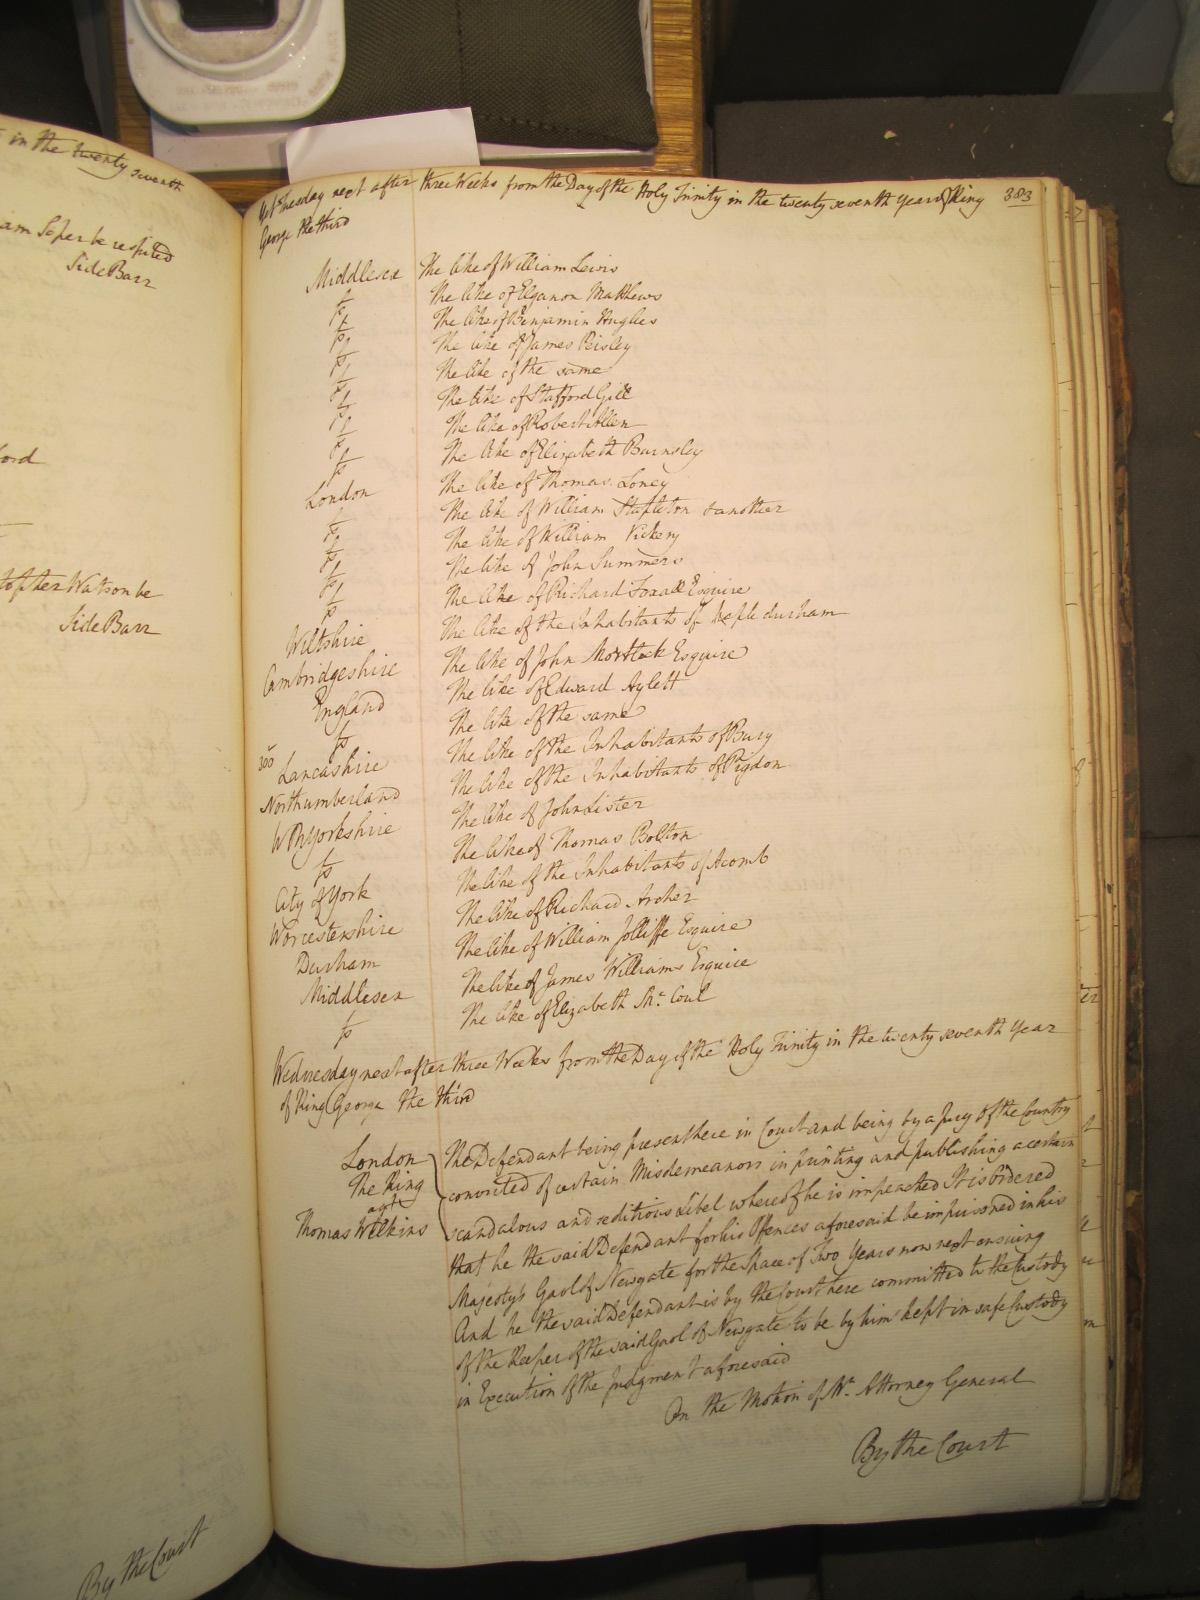 in the twenty seventh
am Soper be respited
Side Barr
ford
topher Watson be
Side Barr
By the Court
Yet Tuesday next after three Weeks from the Day of the Holy Trinity in the twenty seventh year of King 383
George the third
Middlesex The like of William Lewis
The like of Elganon Matthews
The like of Benjamin Hughes
The like of James Peisley
The like of the same
The like of Stafford Gill
The like of Robert Allen
The like of Elizabeth Barnsley
The like of Thomas Loney
London The like of William Stapleton & another
The like of William Vickery
The like of John Summers
The like of Richard Foxall Esquire
The like of the Inhabitants of durham
Wiltshire The like of John Mortlock Esquire
Cambridgeshire The like of Edward Aylett
England The like of the same
The like of the Inhabitants of Bury
Lancashire The like of the Inhabitants of Pigdon
Northumberland The like of John Lister
Yorkshire The like of Thomas Bolton
The like of the Inhabitants of Acomb
City of York The like of Richard Archer
Worcestershire The like of William Jolliffe Esquire
Durham The like of James Williams Esquire
Middlesex The like of Elizabeth Mc. Coul
Wednesday next after three Weeks from the Day of the Holy Trinity in the twenty seventh Year
of King George the third
London
The King
agt
Thomas Wilkins
The Defendant being present here in Court and being by a Jury of the Country
convicted of certain Misdemeanors in printing and publishing a certain
scandalous and seditious Libel whereof he is impeached It is Ordered
that he the said Defendant for his Offences aforesaid be imprisoned in his
Majesty's Gaol of Newgate for the Space of Two Years now next ensuing
And he the said Defendant is by the Court here committed to the Custody
of the Keeper of the said Gaol of Newgate to be by him kept in safe Custody
in Execution of the Judgment aforesaid
On the Motion of Mr. Attorney General
By the Court